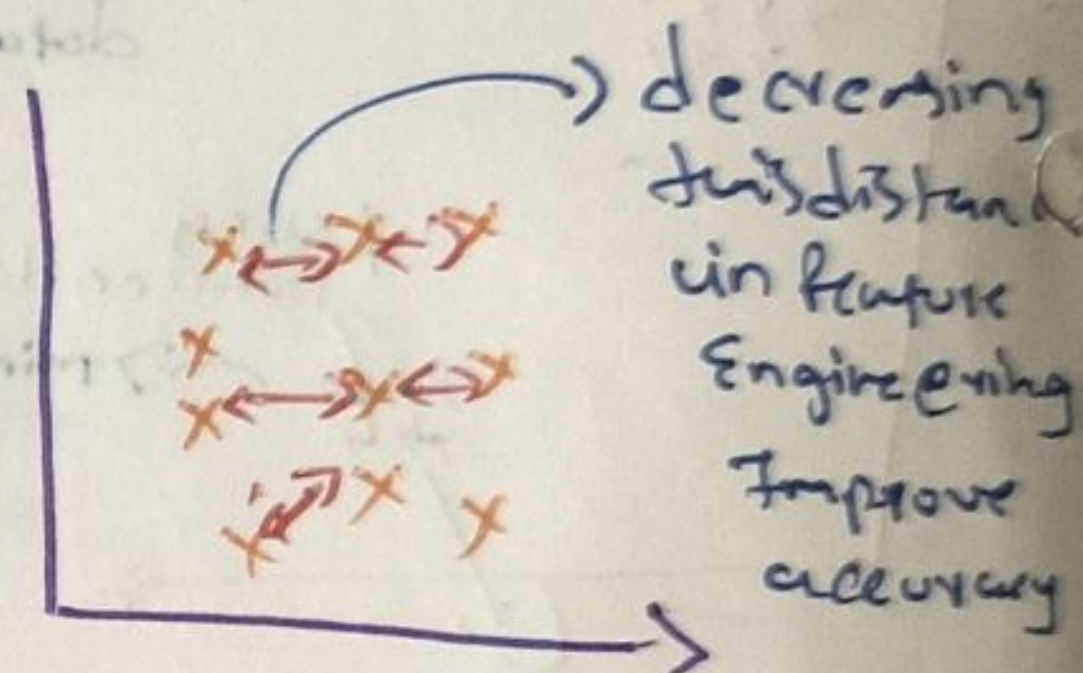 decreasing
this distan
in feature
Engineering
Improve
accuracy